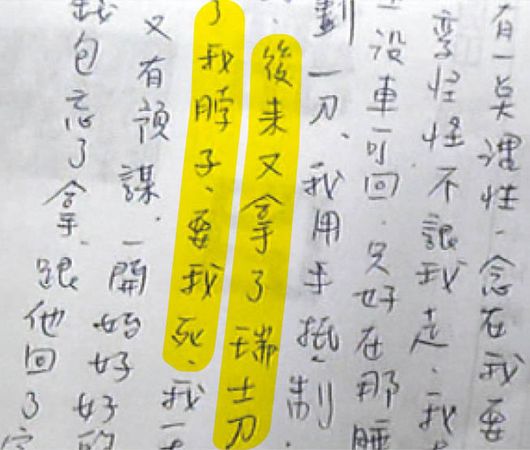 有一点理性,念在我要
彎怪怪不讓我走,我
,沒車可回,只好在那睡
劃一刀、我用手抵制
後来又拿了瑞士刀
了我脖子、要我死、我一
又有預謀,一開始好好的
我包忘了拿,跟他回了